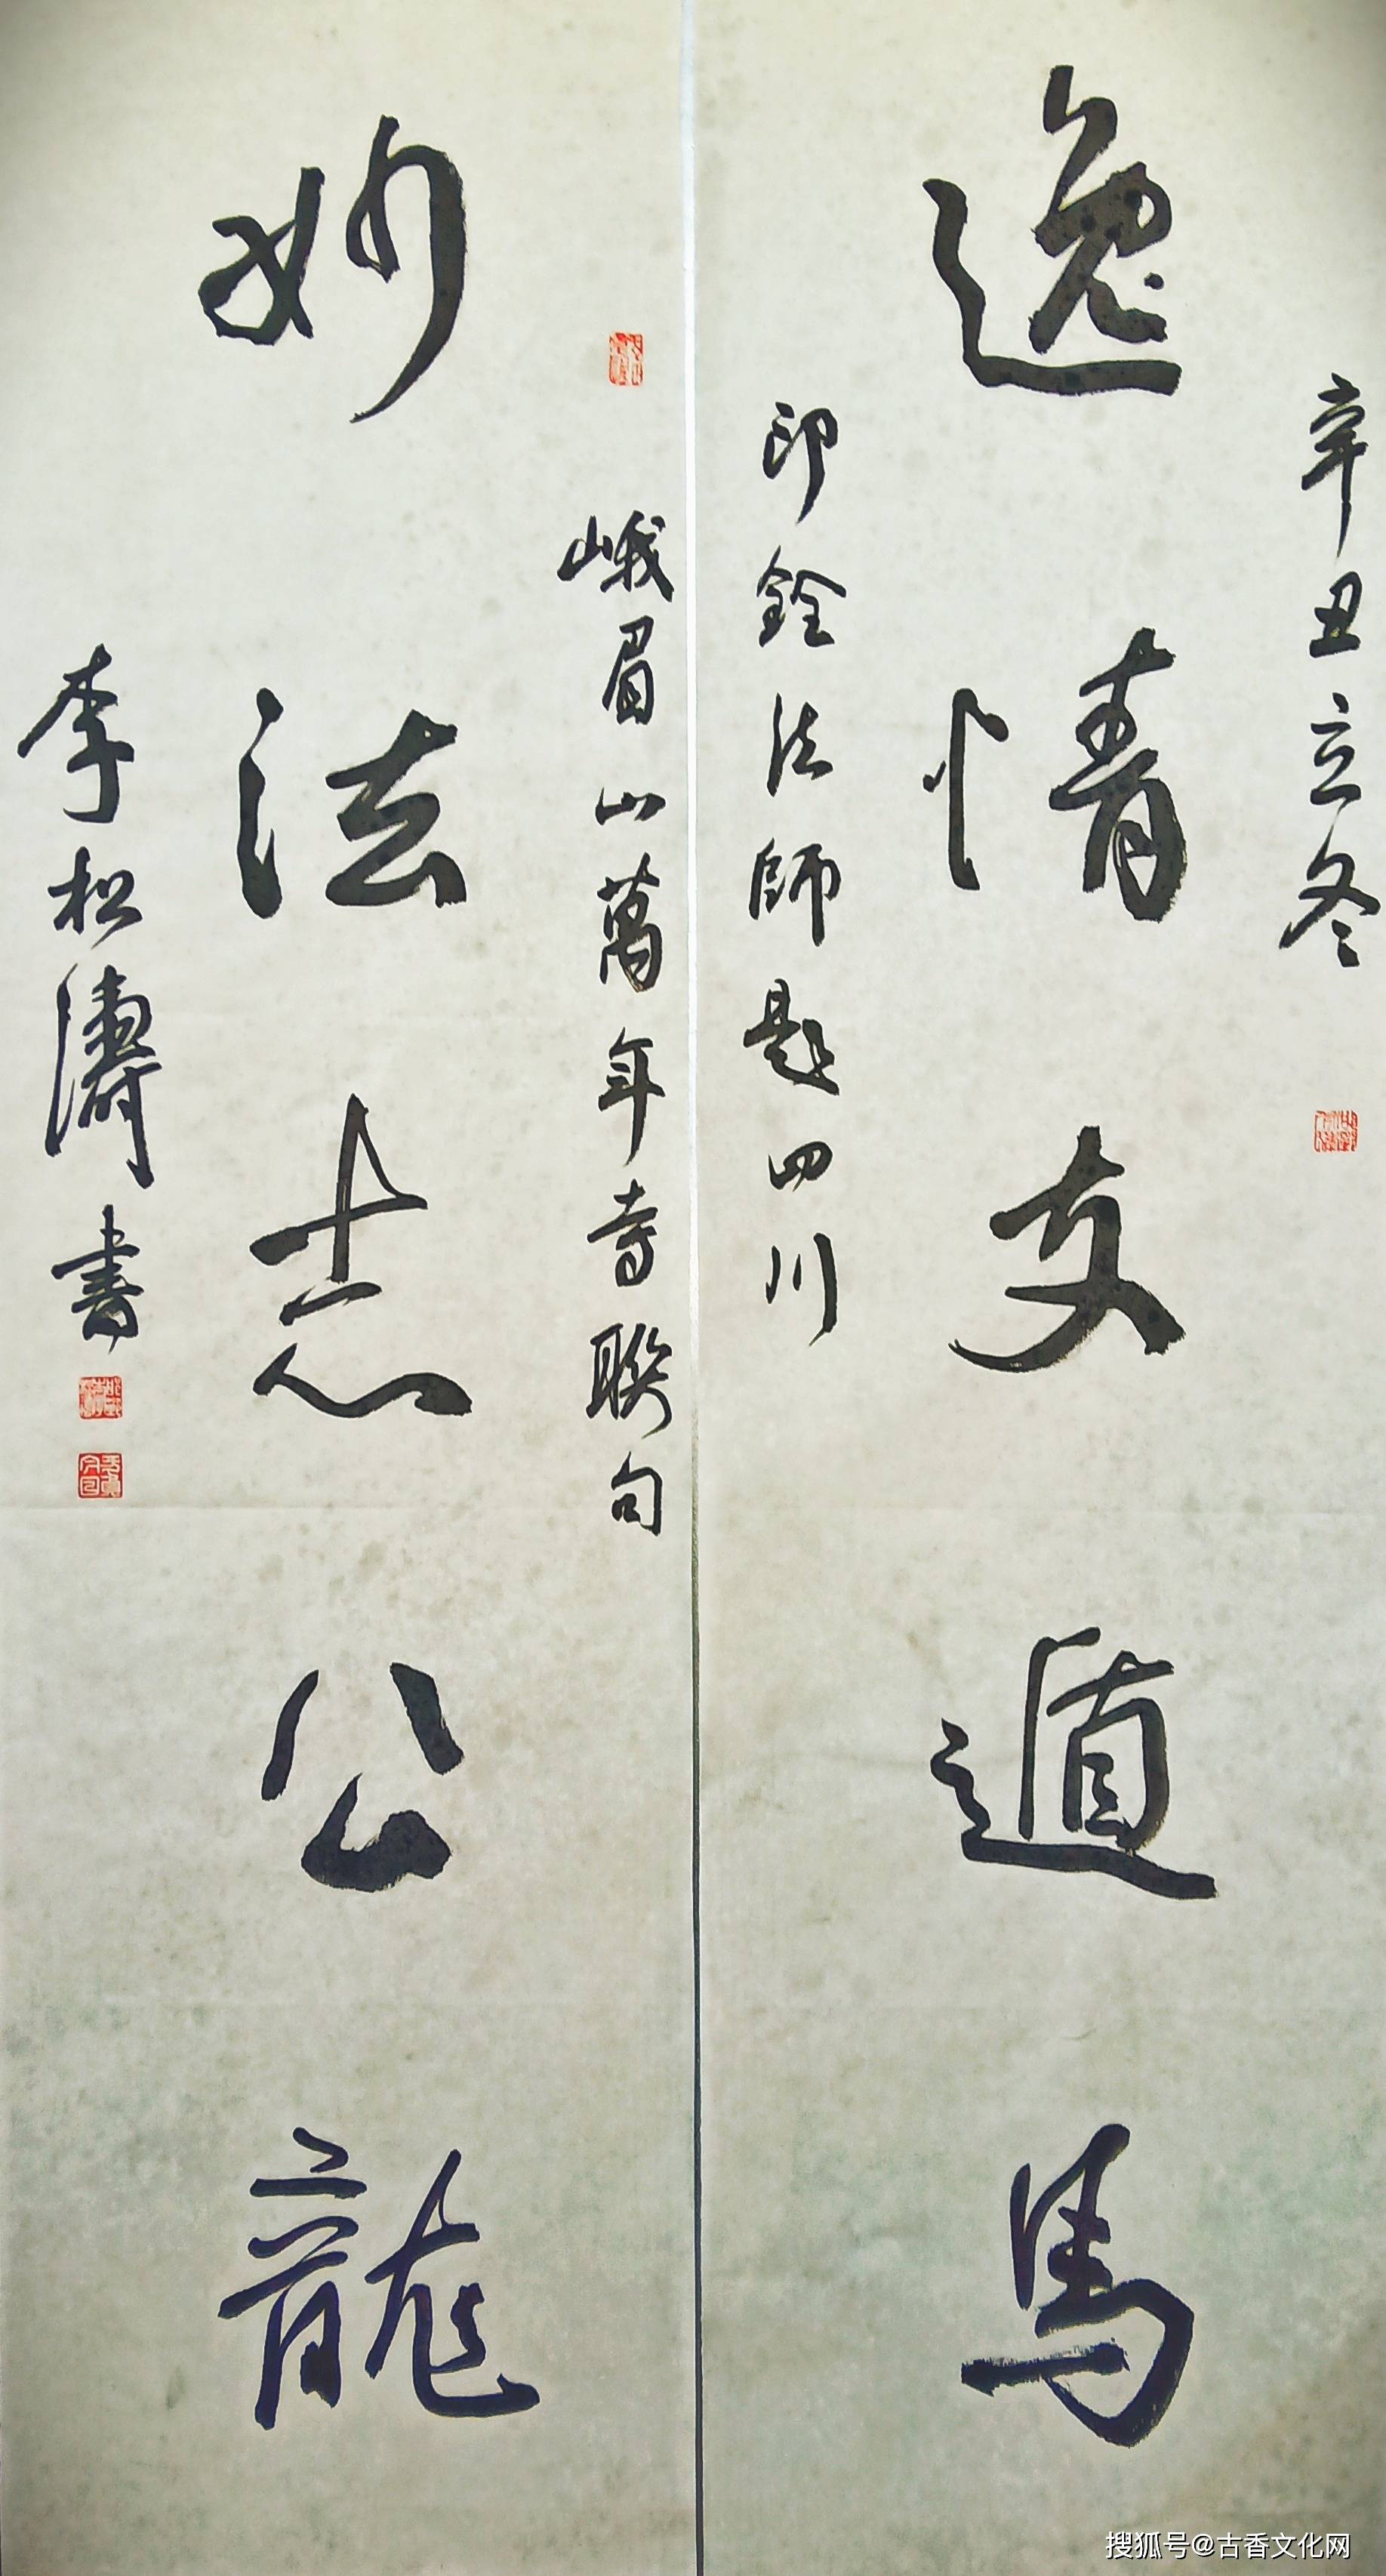 辛丑立冬
逸情支遁馬
印銓法師題四川
峨眉山萬年寺聯句
妙法志公龍
李松濤書
搜狐号@古香文化网